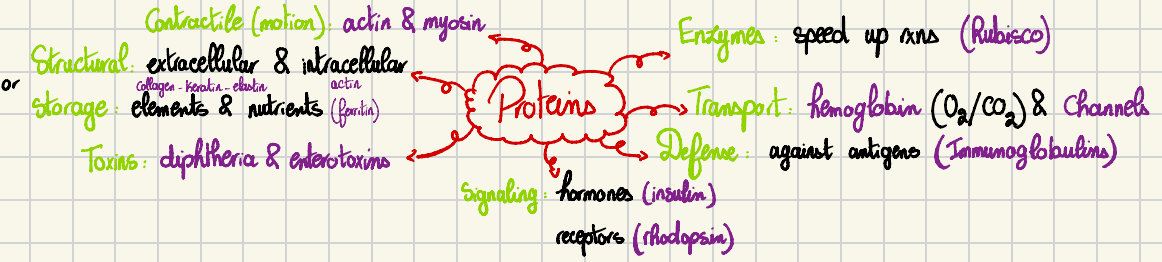 Contractile (motion): actin & myosin
Structural: extracellular & intracellular
collagen - keratin - elastin actin
or
Storage: elements & nutrients (ferritin)
Toxins: diphtheria & enterotoxins
Proteins
Enzymes: speed up rxns (Rubisco)
Transport: hemoglobin (O₂/CO₂) & Channels
Defense: against antigens (Immunoglobulins)
Signaling: hormones (insulin)
receptors (rhodopsin)